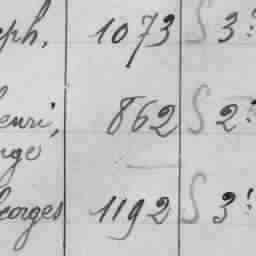 eph. 1073 S 3?
enri, 862 S 2?
nge
eorges 1192 S 3!